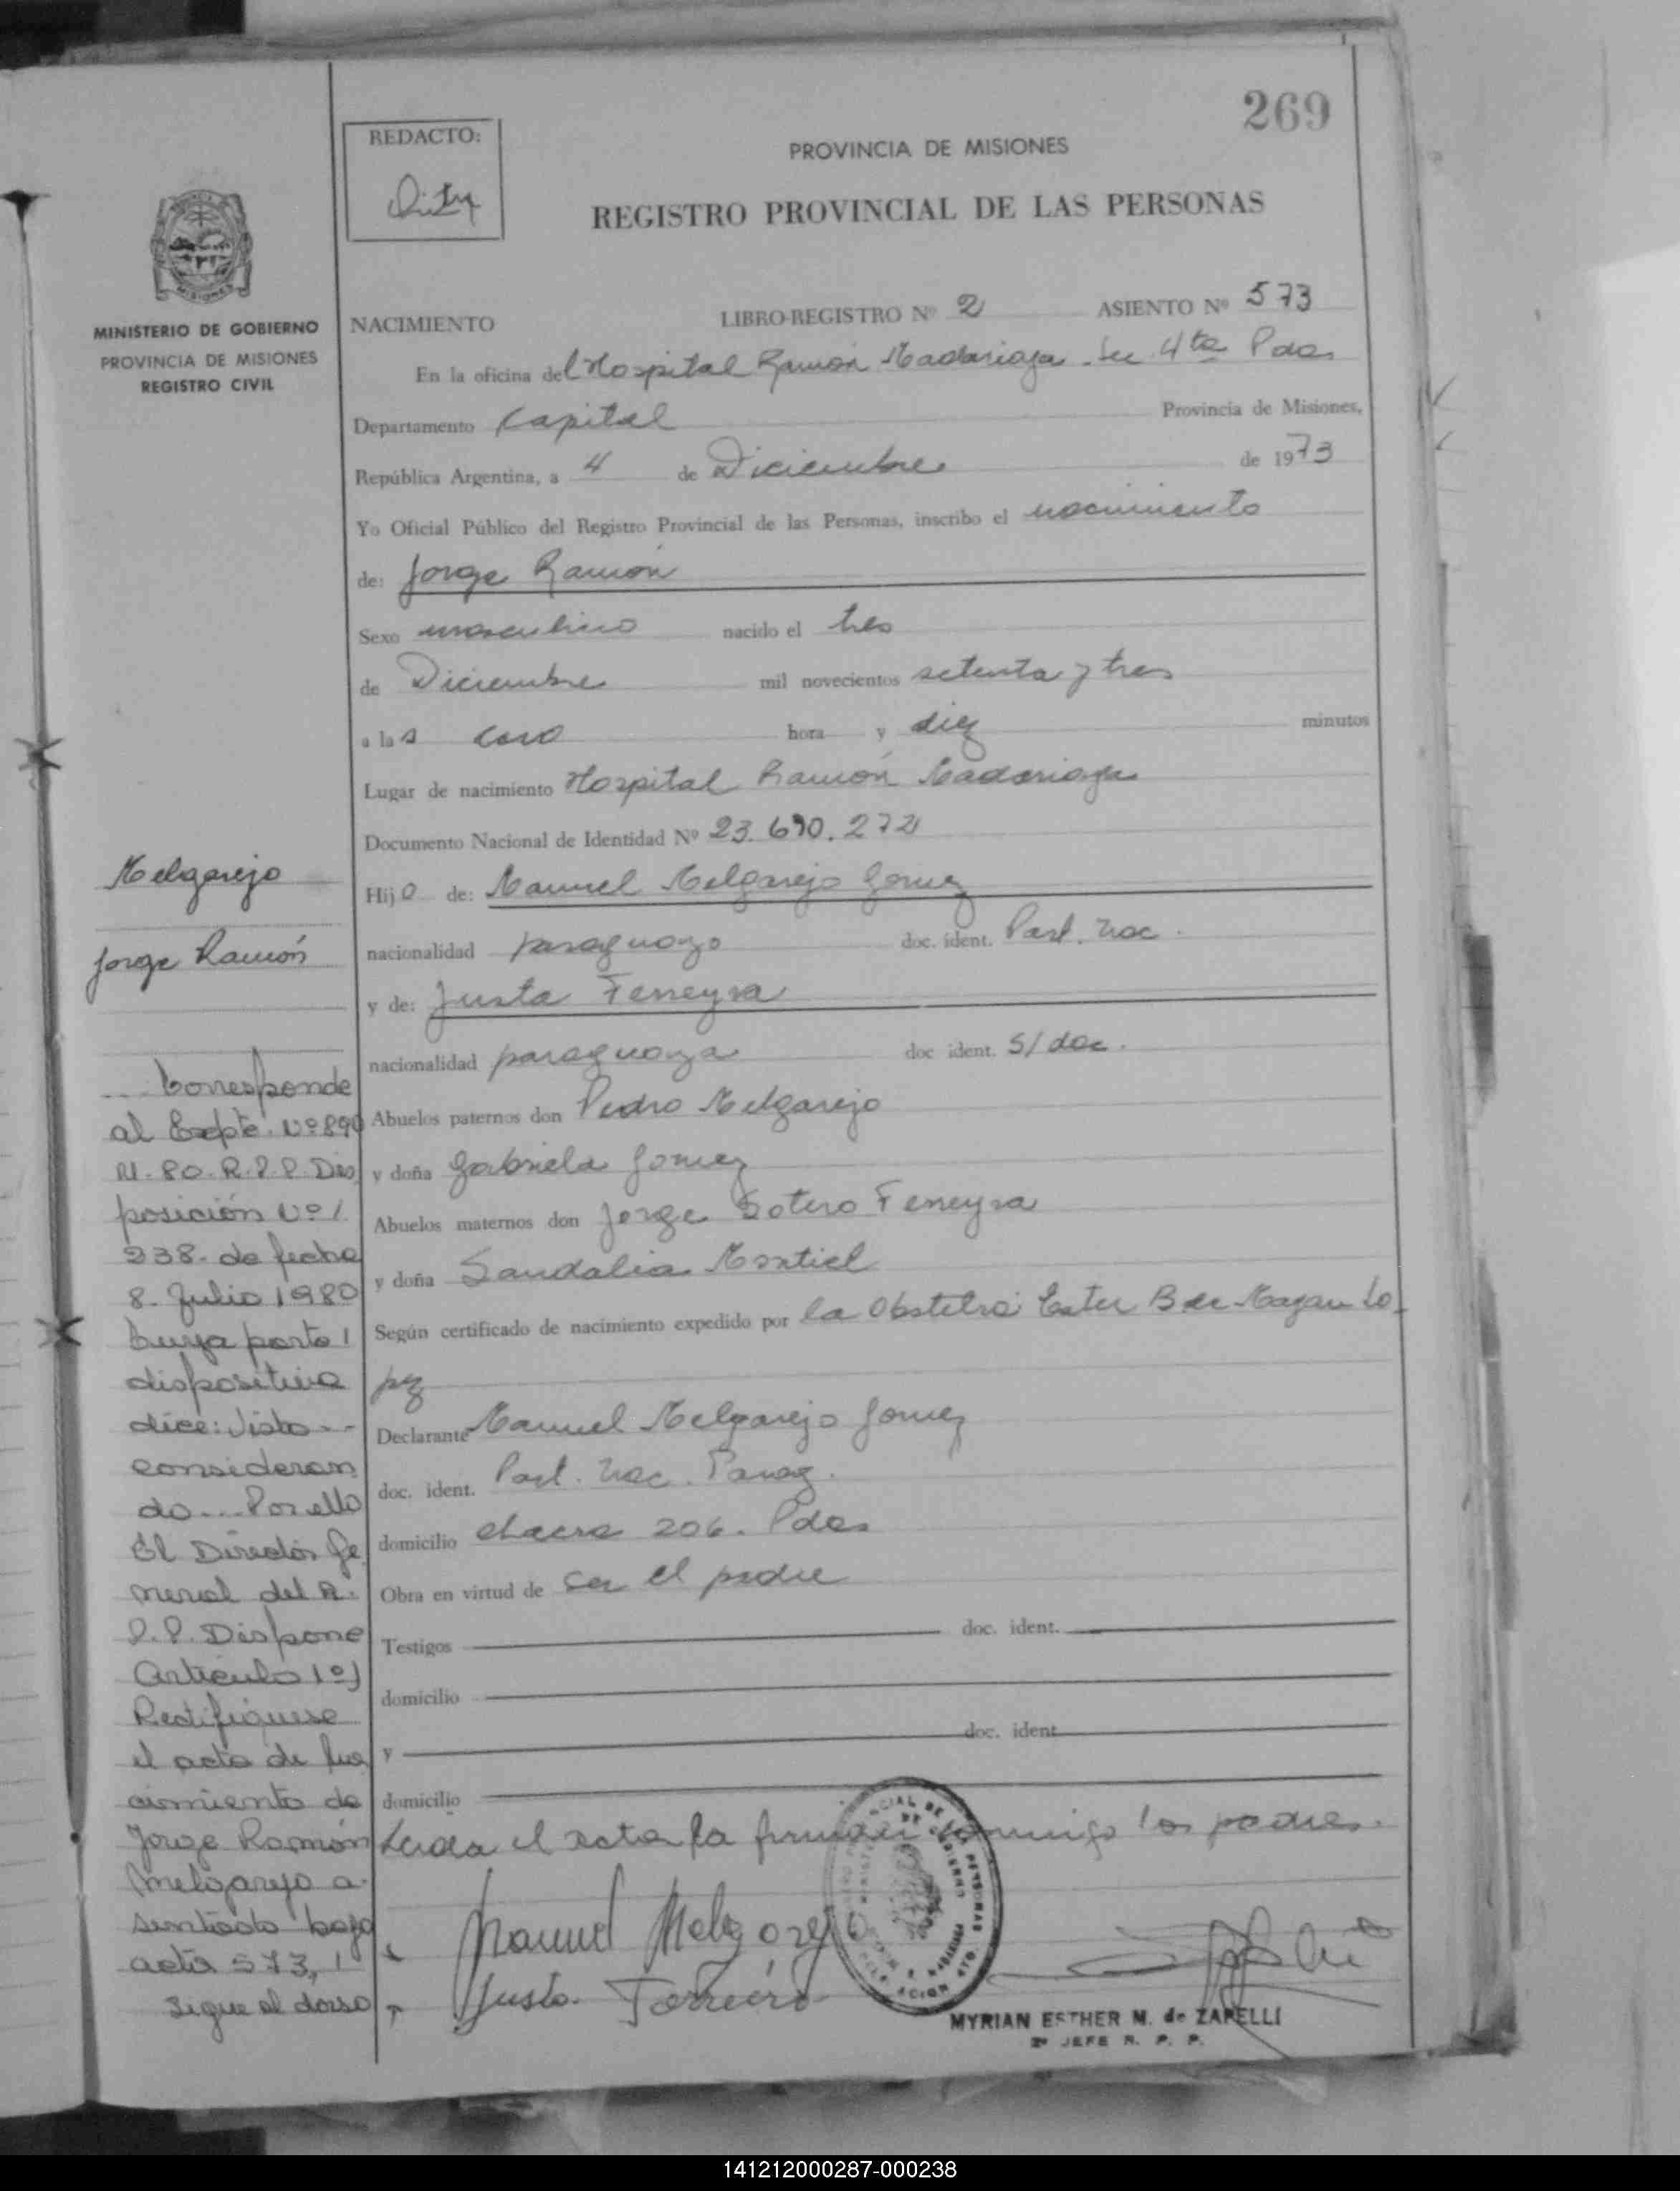 269
REDACTO:
PROVINCIA DE MISIONES
REGISTRO PROVINCIAL DE LAS PERSONAS
MISIONES
MINISTERIO DE GOBIERNO
PROVINCIA DE MISIONES
REGISTRO CIVIL
NACIMIENTO LIBRO-REGISTRO Nº 2 ASIENTO Nº 573
En la oficina del Hospital Ramón Madariaga 4ta Pdas
Departamento Capital Provincia de Misiones,
República Argentina, a 4 de Diciembre de 1973
Yo Oficial Público del Registro Provincial de las Personas, inscribo el nacimiento
de: Jorge Ramón
Sexo masculino nacido el tres
de Diciembre mil novecientos setenta y tres
a las cero hora y diez minutos
Lugar de nacimiento Hospital Ramón Madariaga
Documento Nacional de Identidad Nº 23.690.272
Hijo de: Manuel Melgarejo Gomez
nacionalidad paraguayo doc. ident. Part. Nac.
y de: Justa Ferreyra
nacionalidad paraguaya doc ident. S/doc.
Abuelos paternos don Pedro Melgarejo
y doña Gabriela Gomez
Abuelos maternos don Jorge Sotero Ferreyra
y doña Sandalia Montiel
Según certificado de nacimiento expedido por la Obstetra Ester B de Lo-
pez
Declarante Manuel Melgarejo Gomez
doc. ident. Part. Nac. Parag.
domicilio chacra 206. Pdas
Obra en virtud de ser el padre
Testigos doc. ident.
domicilio
y doc. ident.
domicilio
Leida el acta la firman conmigo los padres.
Manuel Melgarejo
Justa Ferreira
MYRIAN ESTHER M. de ZAPELLI
2º JEFE R. P. P.
Melgarejo
Jorge Ramón
... Corresponde
al Expte. Nº 890
R.P.P. Dis
posición Nº 1
238. de fecha
8. Julio 1980
Cuya parte
dispositiva
dice: Visto...
consideran
do... Por ello
El Director Ge
neral del R.
P.P. Dispone
Articulo 1º)
Rectifiquese
el acta de na
cimiento de
Jorge Ramón
Melgarejo a
sentada bajo
acta 573,
Sigue al dorso
141212000287-000238